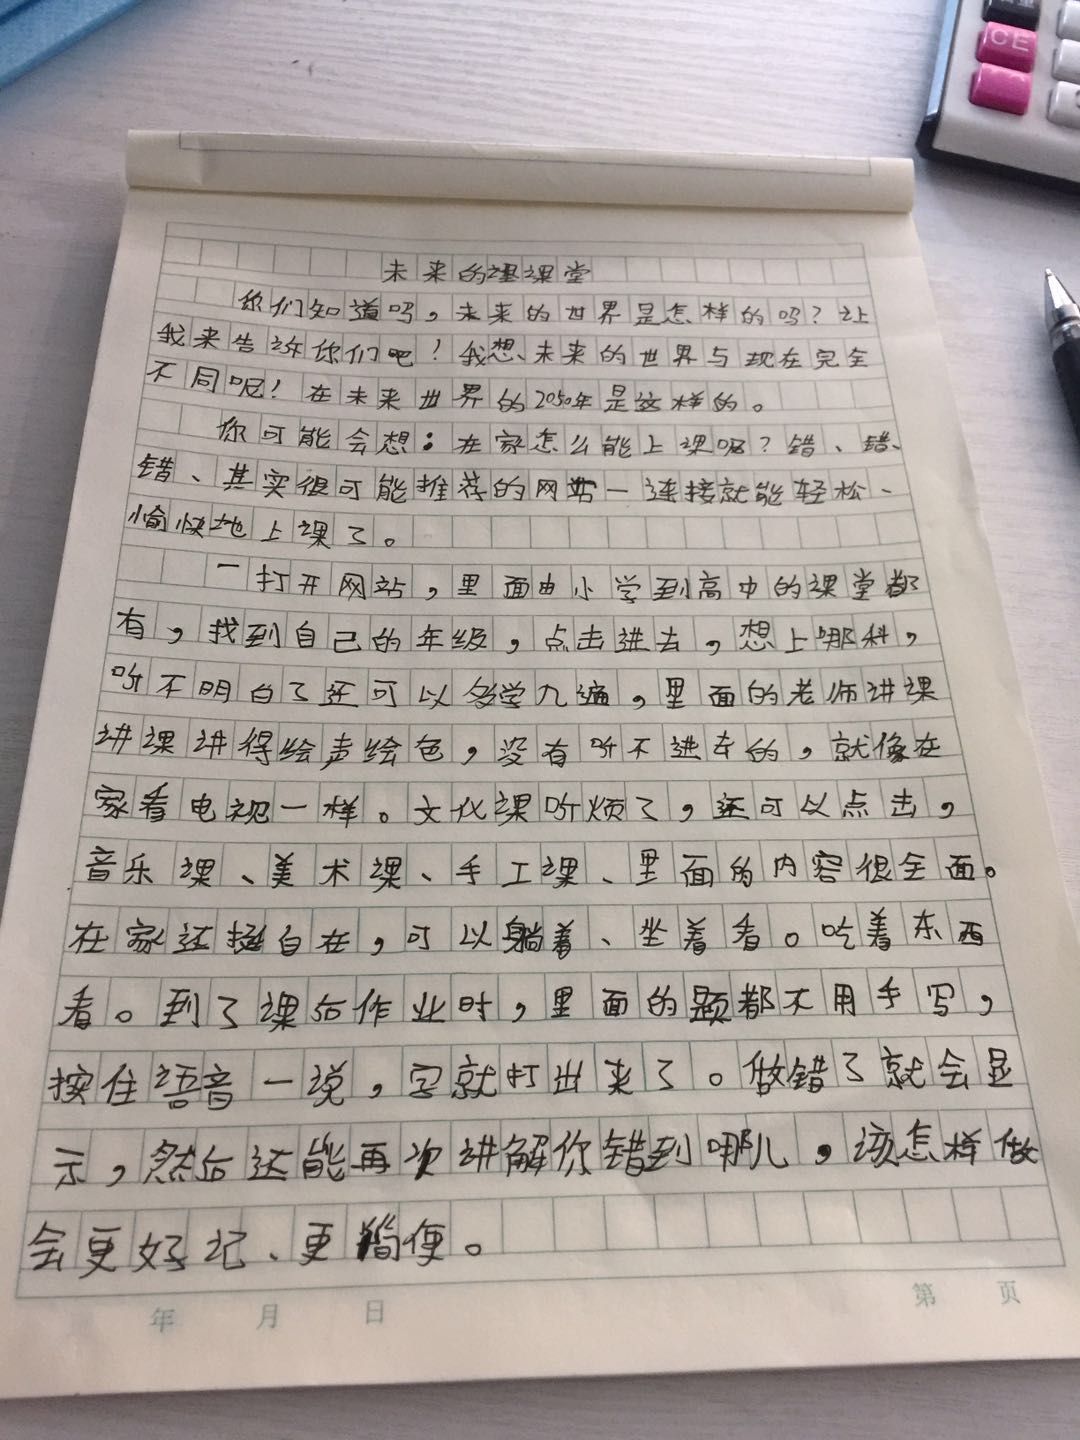 CE
未来的课课堂
你们知道吗，未来的世界是怎样的吗？让
我来告诉你们吧！我想、未来的世界与现在完全
不同呢！在未来世界的2050年是这样的。
你可能会想：在家怎么能上课呢？错、错、
错、其实很可能推荐的网站一连接就能轻松、
愉快地上课了。
一打开网站，里面由小学到高中的课堂都
有，找到自己的年级，点击进去，想上哪科，
听不明白了还可以多学九遍，里面的老师讲课
讲课讲得绘声绘色，没有听不进去的，就像在
家看电视一样。文化课听烦了，还可以点击，
音乐课、美术课、手工课、里面的内容很全面。
在家还挺自在，可以躺着、坐着看。吃着东西
看。到了课后作业时，里面的题都不用手写，
按住语音一说，字就打出来了。做错了就会显
示，然后还能再次讲解你错到哪儿，该怎样做
会更好记、更简便。
年 月 日
第 页